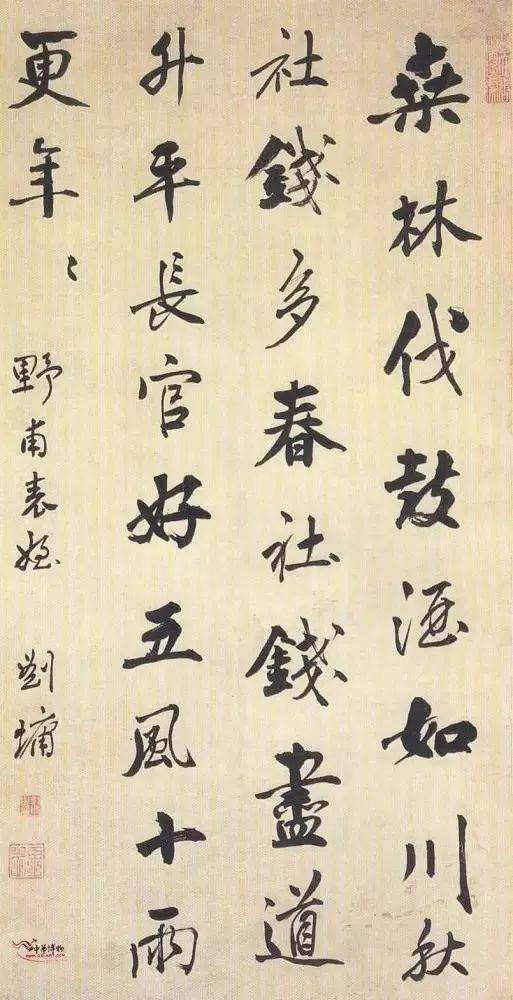 桑林伐鼓酒如川秋
社錢多春社錢盡道
升平長官好五風十雨
更年〻
野甫表姪 劉墉